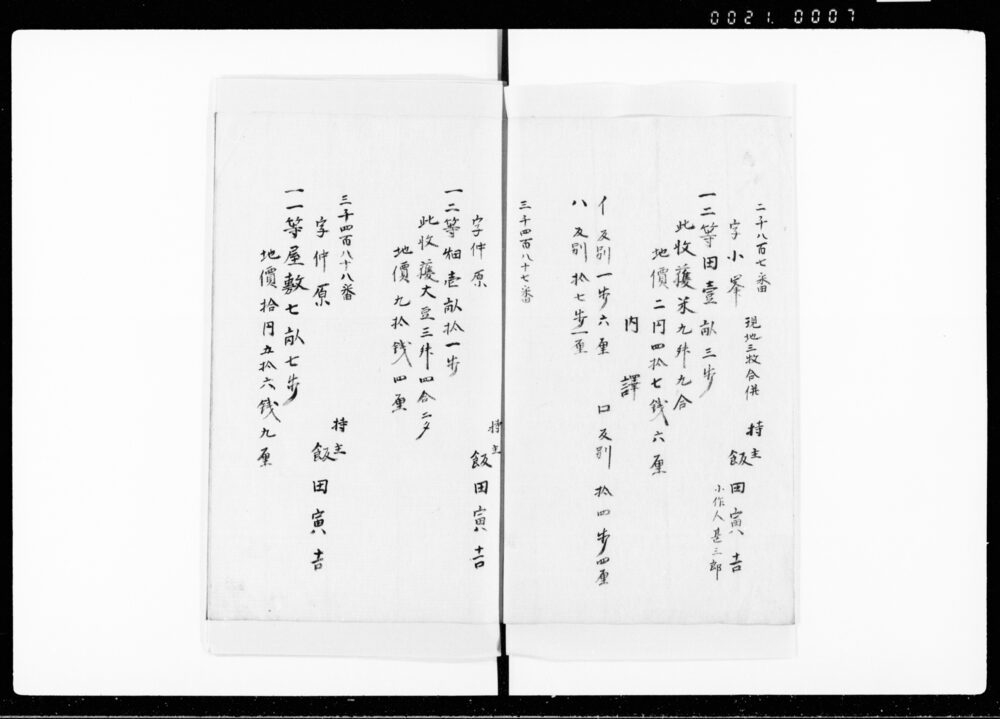 0021. 0007
二千八百七番
字小峯 現地三枚合併 持主 飯田寅吉
小作人甚三郎
一二等田壹畝三歩
此收穫米九舛九合
地價二円四拾七銭六厘
内譯
イ反別一歩六厘 ロ反別拾四歩四厘
ハ反別拾七歩一厘
三千四百八十七番
字仲原 持主 飯田寅吉
一二等畑壱畝拾一歩
此收穫大豆三舛四合二夕
地價九拾銭四厘
三千四百八十八番
字仲原 持主 飯田寅吉
一一等屋敷七畝七歩
地價拾円五拾六銭九厘